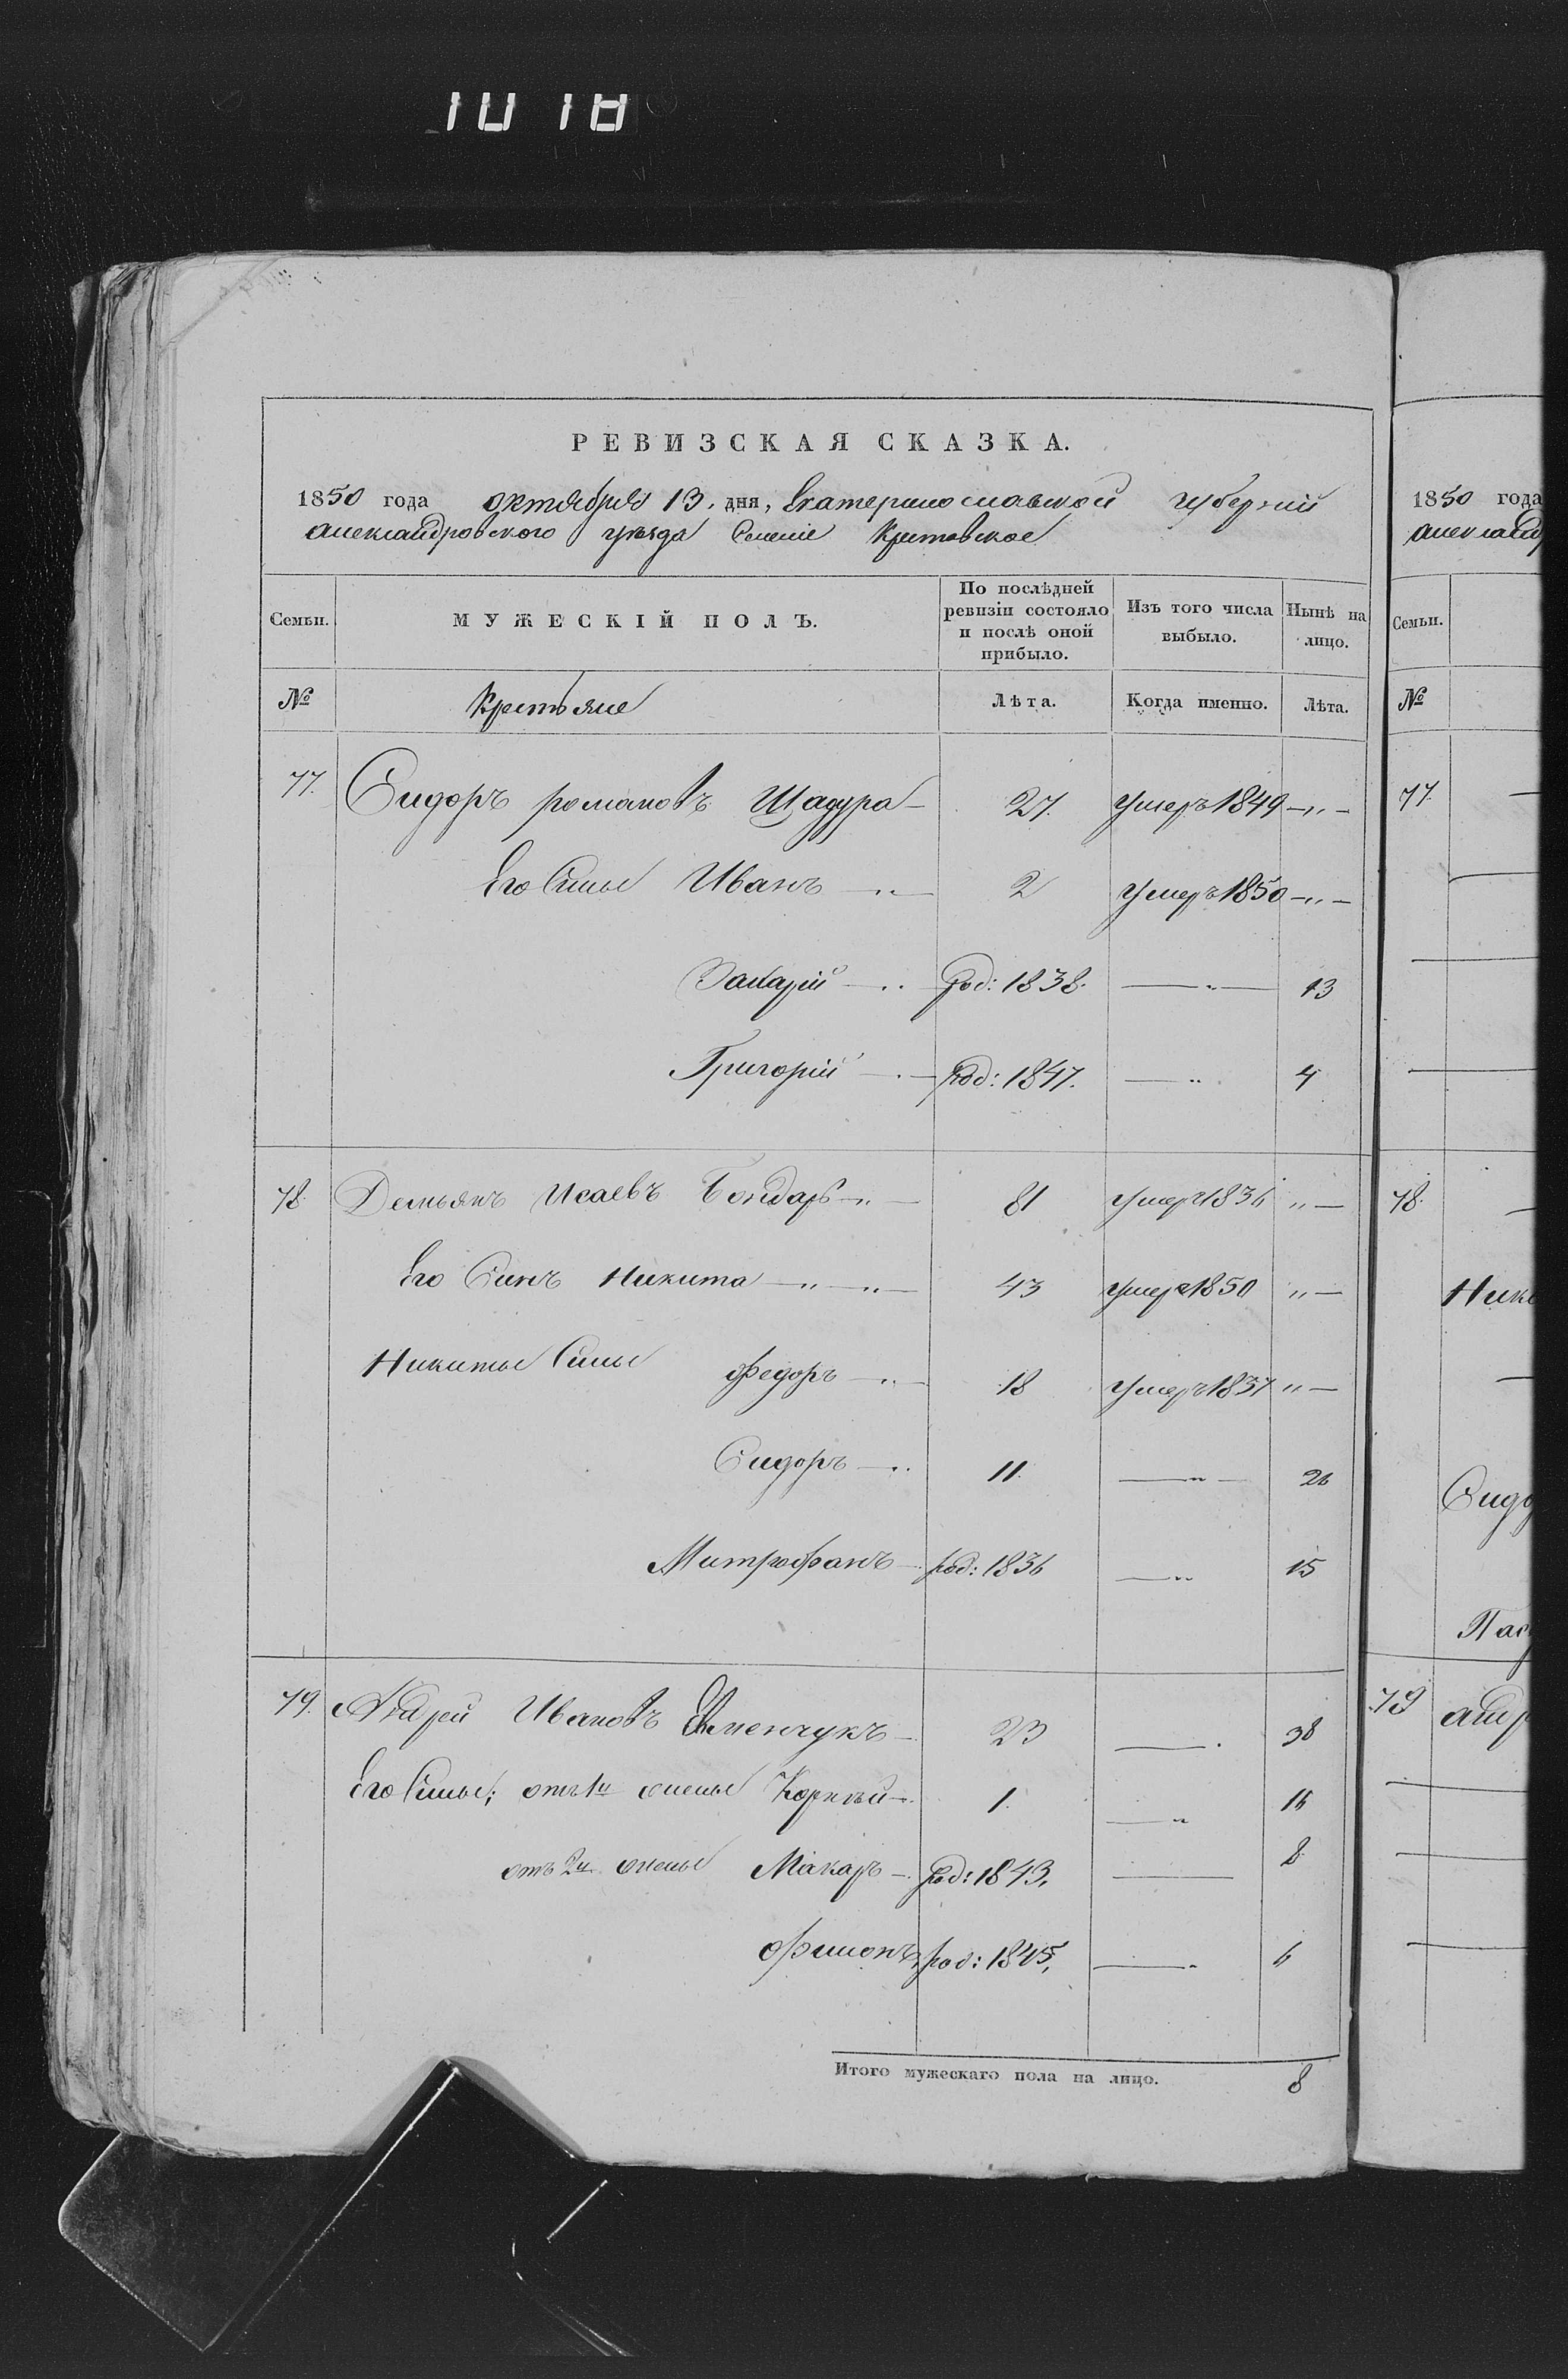 1018
РЕВИЗСКАЯ СКАЗКА.
1850 года октября 13. дня, Екатеринославской губерніи
Александровского уѣзда Селеніе
Семьи. МУЖЕСКІЙ ПОЛЪ. По послѣдней ревизіи состояло и послѣ оной прибыло. Изъ того числа выбыло. Нынѣ на лицо.
№ Крестьяне Лѣта. Когда именно. Лѣта.
77. Сидоръ романовъ Щадура 27. умеръ 1849 —„—
Его Сыны Иванъ —„— 2 умеръ 1850 —„—
Захарій род: 1838. —„— 13
Григорій род: 1847. —„ 4
78. Демьянъ Исаевъ Бондарь —„— 81 умеръ 1836 „—
Его Синъ Никита —„—„— 43 умеръ 1850 „—
Никиты Сины федоръ —„— 18 умеръ 1837 „—
Сидоръ —„ 11. —„— 26
Митрофанъ род: 1836 —„ 15
79. Андрей Ивановъ 23 —. 38
Его Сины; отъ 1й жены Корнѣй 1. —„ 16
отъ 2й жены Макаръ род: 1843, — 8
род: 1845, —„ 6
Итого мужескаго пола на лицо. 8
1850 года
Семьи.
№
77.
78.
Сидо
79